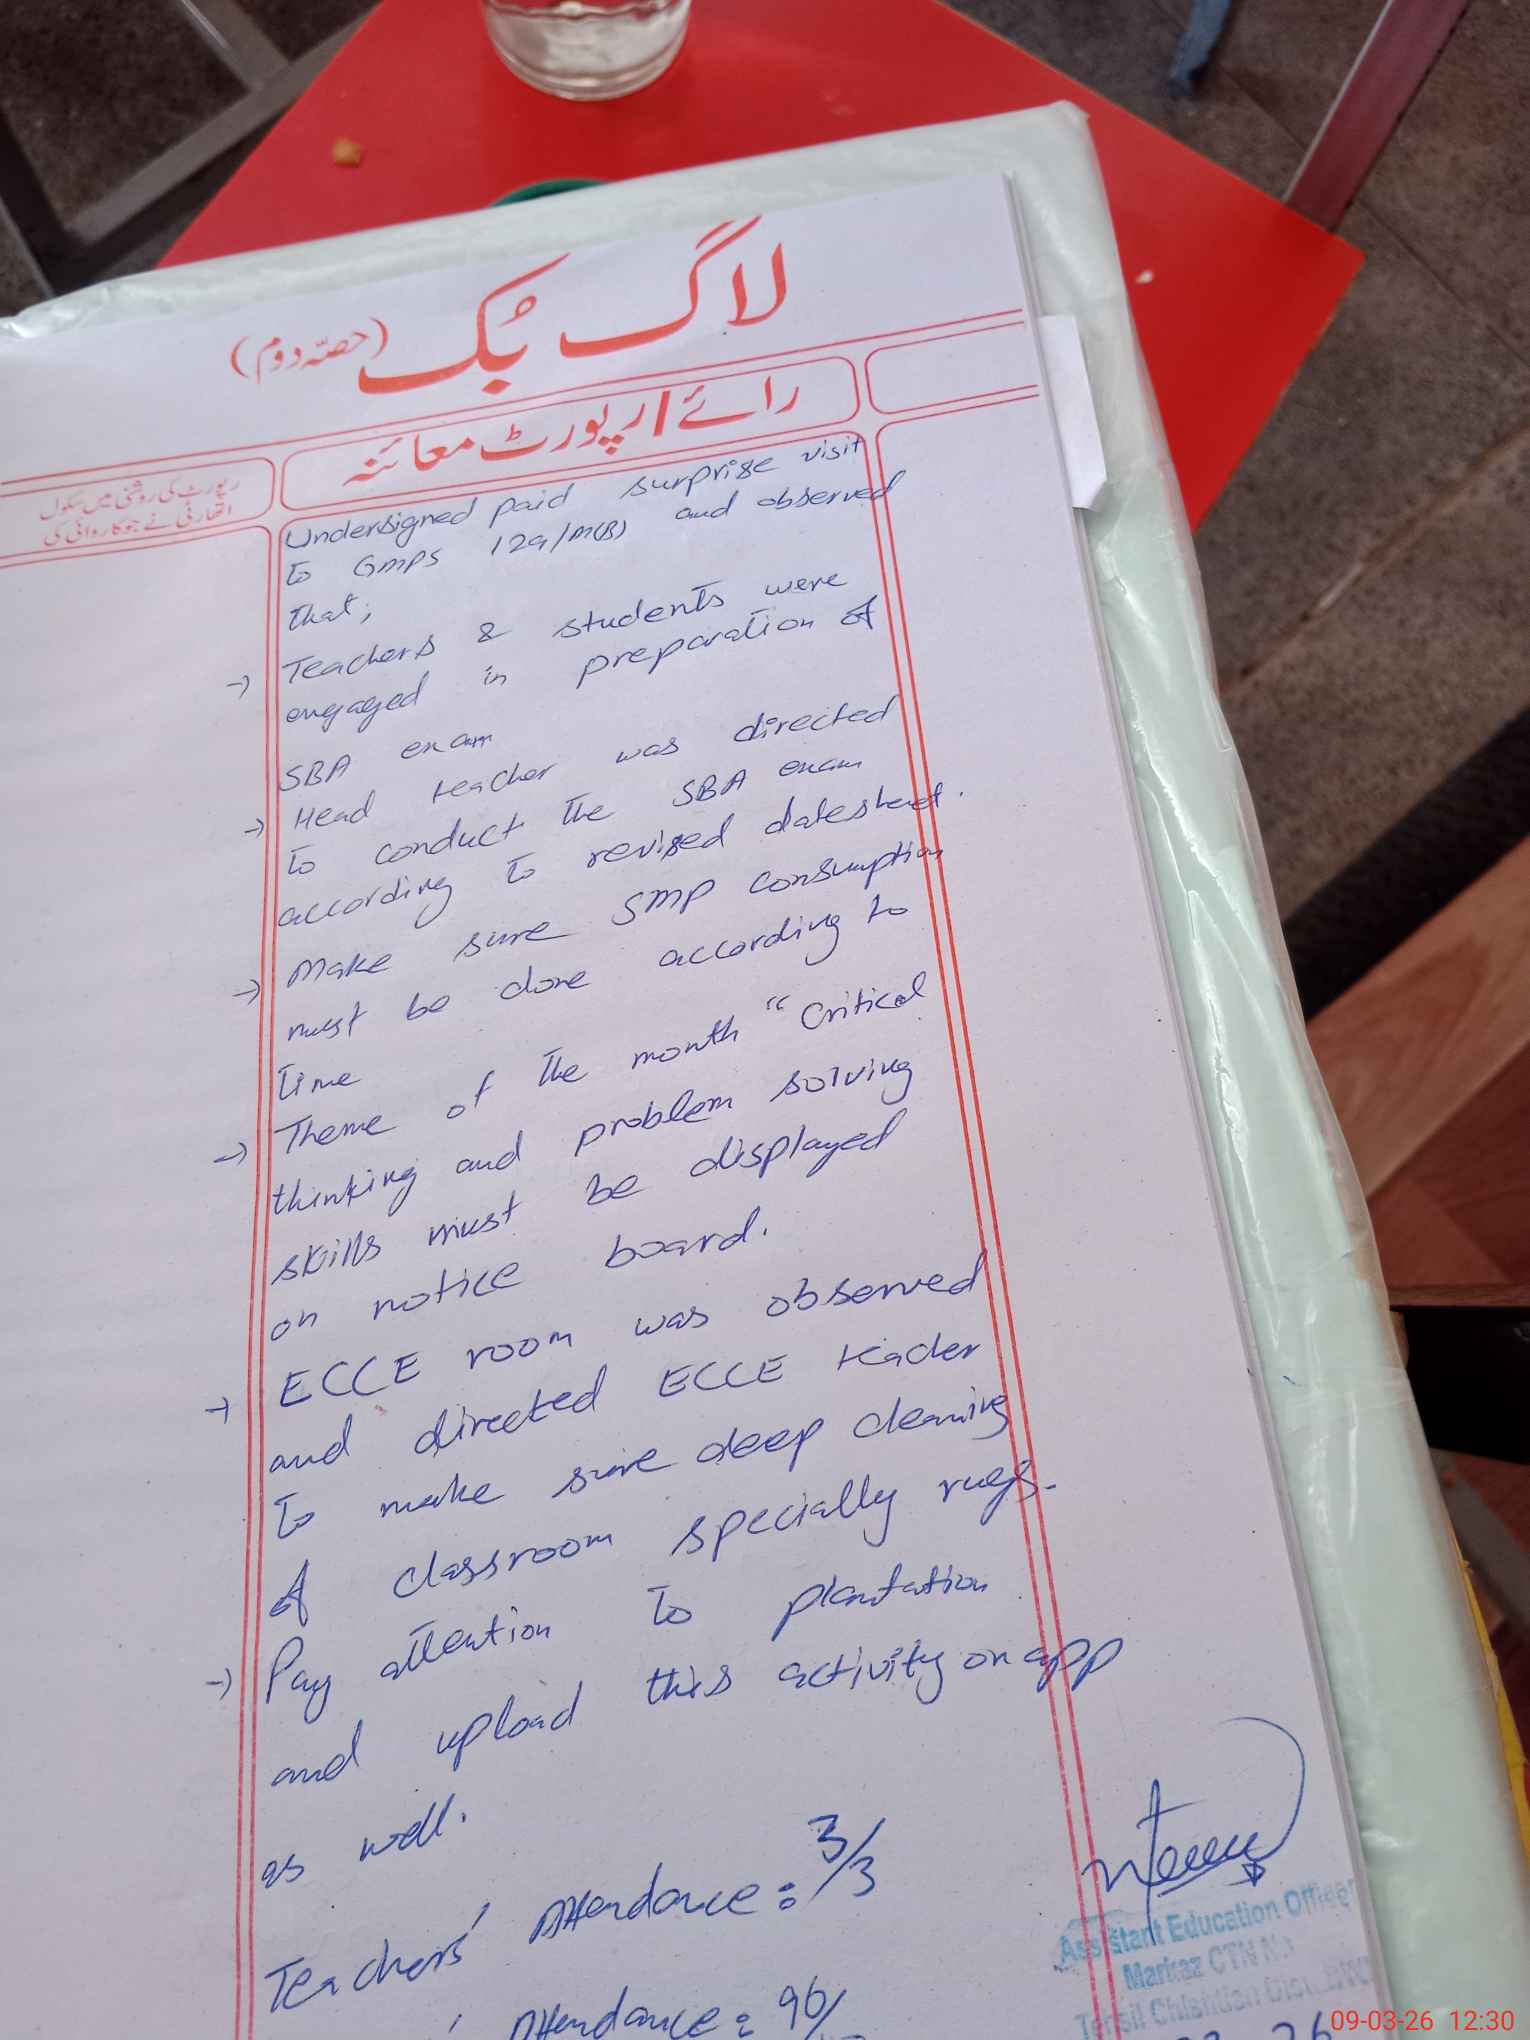 لاگ بُک (حصّہ دوم)
رائے / رپورٹ معائنہ
رپورٹ کی روشنی میں سکول
اتھارٹی نے جو کاروائی کی
Undersigned paid surprise visit
to GMPS 129/M(B) and observed
that;
→ Teachers & students were
engaged in preparation of
SBA exam
→ Head teacher was directed
to conduct the SBA exam
according to revised datesheet.
→ Make sure SMP consumption
must be done according to
time
→ Theme of the month "Critical
thinking and problem solving
skills must be displayed
on notice board.
→ ECCE room was observed
and directed ECCE teacher
to make sure deep cleaning
of classroom specially rugs.
→ Pay attention to plantation
and upload this activity on app
as well.
Teachers' Attendance: 3/3
Attendance: 96/
Assistant Education Officer
Markaz CTN No
Tehsil Chishtian Dist. BWN
09-03-26 12:30